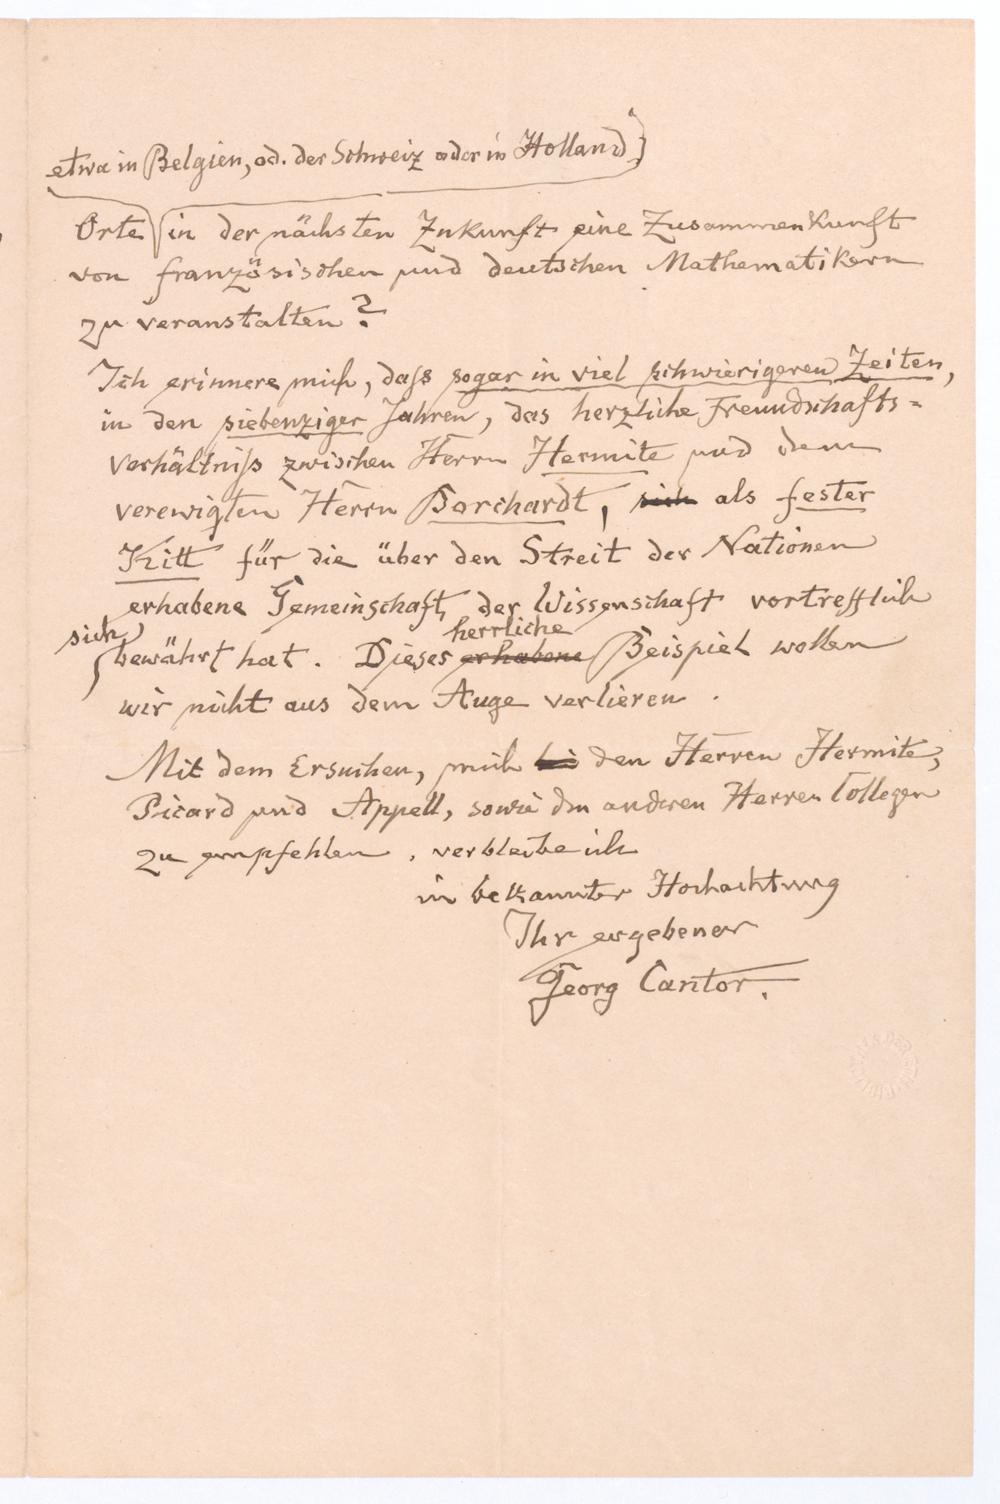 etwa in Belgien, od. der Schweiz oder in Holland
Orte in der nächsten Zukunft eine Zusammenkunft
von französischen und deutschen Mathematikern
zu veranstalten?
Ich erinnere mich, daß sogar in viel schwierigeren Zeiten,
in den siebenziger Jahren, das herzliche Freundschafts-
verhältniß zwischen Herrn Hermite und dem
verewigten Herrn Borchardt, sich als fester
Kitt für die über den Streit der Nationen
erhabene Gemeinschaft der Wissenschaft vortrefflich
sich herrliche
bewährt hat. Dieses erhabene Beispiel wollen
wir nicht aus dem Auge verlieren.
Mit dem Ersuchen, mich den Herren Hermite,
Picard und Appell, sowie den anderen Herren Collegen
zu empfehlen, verbleibe ich
in bekannter Hochachtung
Ihr ergebener
Georg Cantor.